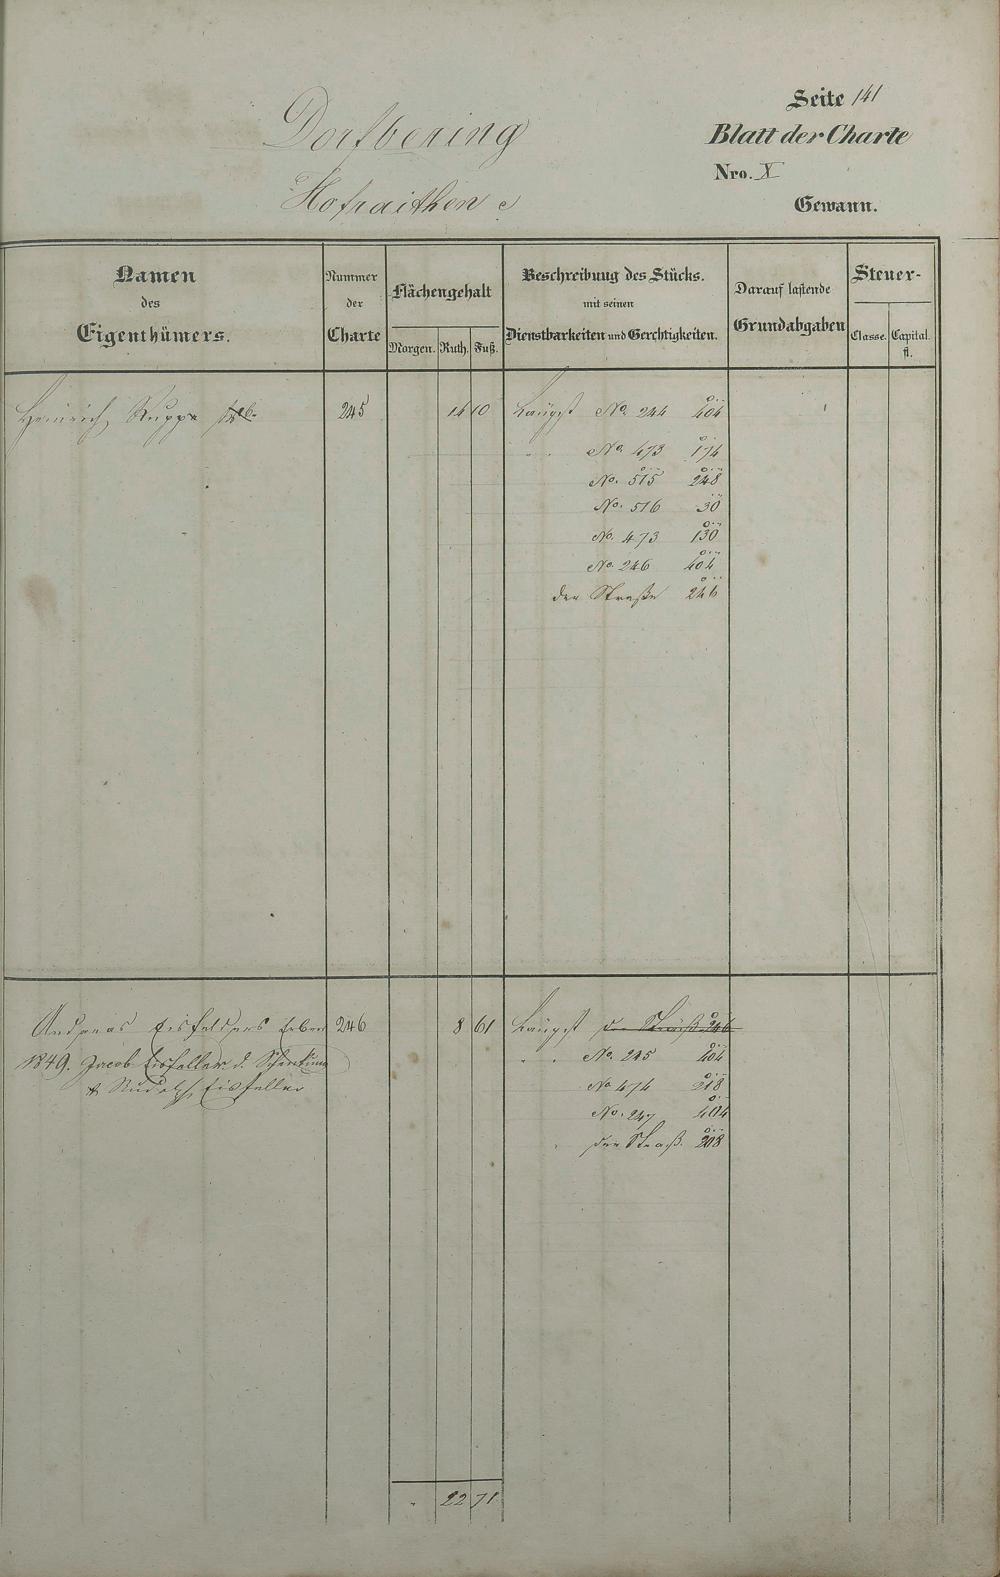 Seite 141
Dorfbering
Blatt der Charte
Nro. X
Hofraithen
Gewann.
Namen des Eigenthümers.
Nummer der Charte
Flächengehalt
Morgen. Ruth. Fuß.
Beschreibung des Stücks. mit seinen Dienstbarkeiten und Gerechtigkeiten.
Darauf lastende Grundabgaben
Steuer-
Classe. Capital. fl.
Heinrich Rupp 245 14 10 Längst No. 244 404
" " No. 473 174
No. 515 248
No. 516 30
No. 473 130
No. 246 404
der Straße 246
Andreas Eisfellers Erben 246 8 61 Längst der Straß 246
1849. Jacob Eisfeller d. " " No. 245 404
& Rudolph Eisfeller No 474 218
No. 247 404
der Straß. 208
" 22 71